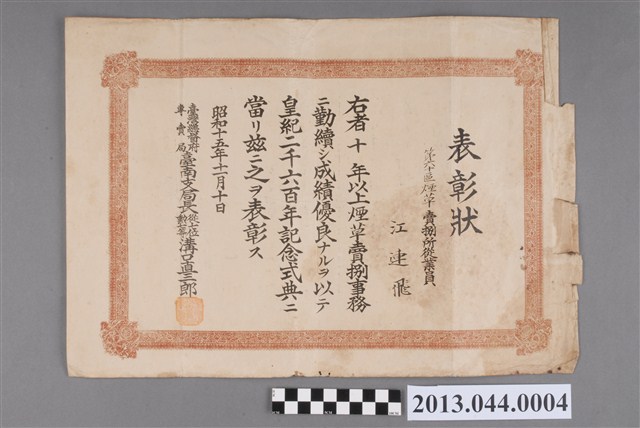 表彰狀
第六區煙草賣捌所從業員
江建飛
右者十年以上煙草賣捌事務
ニ勤續シ成績優良ナルヲ以テ
皇紀二千六百年記念式典ニ
當リ茲ニ之ヲ表彰ス
昭和十五年十一月十日
臺灣總督府
專賣局
臺南支局長
從六位
勳六等
溝口眞三郎
2013.044.0004